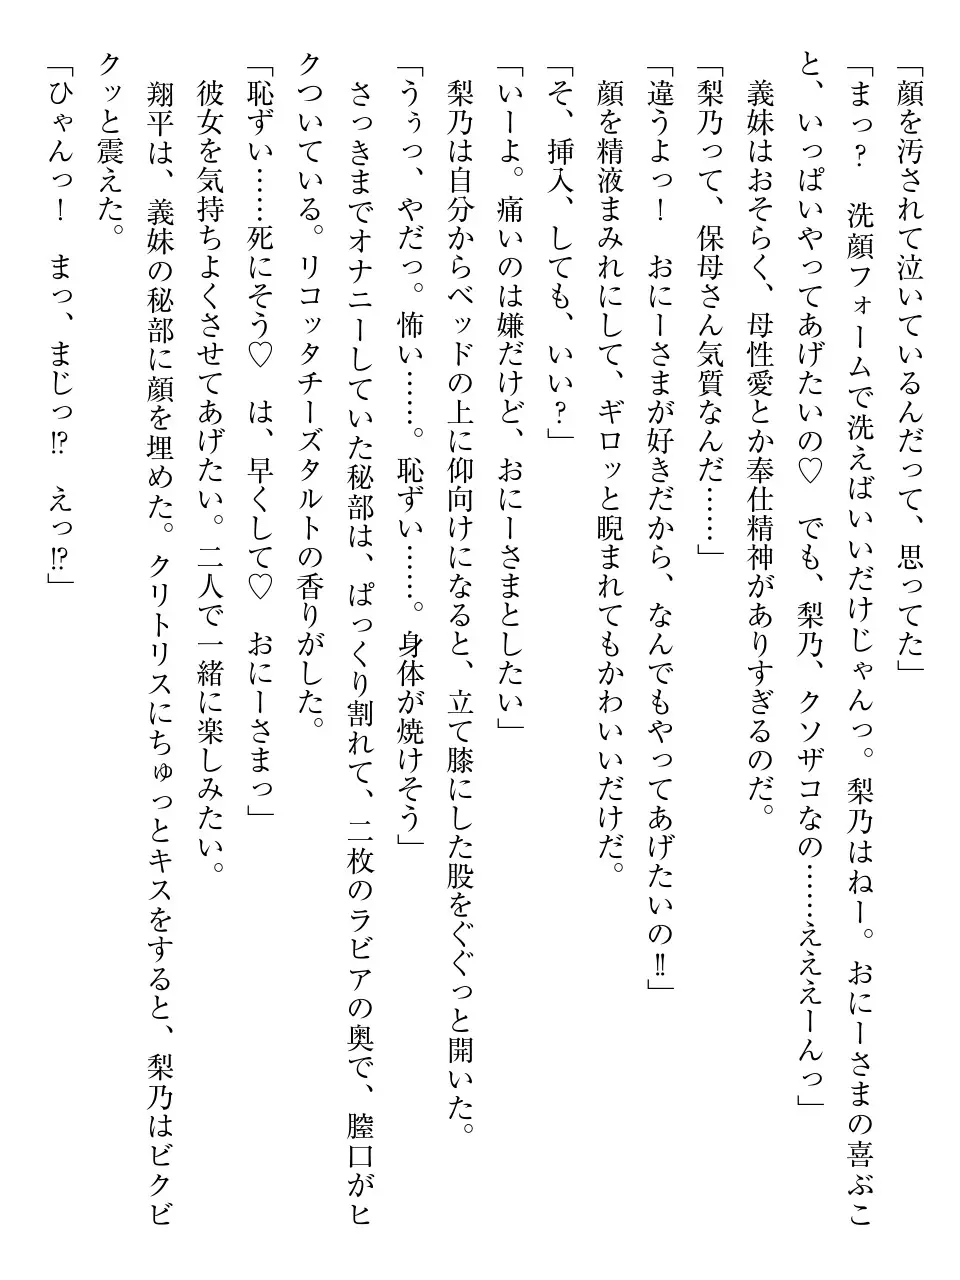 「顔を汚されて泣いているんだって、思ってた」
「まっ？　洗顔フォームで洗えばいいだけじゃんっ。梨乃はねー。おにーさまの喜ぶこ
と、いっぱいやってあげたいの♡　でも、梨乃、クソザコなの……えええーんっ」
　義妹はおそらく、母性愛とか奉仕精神がありすぎるのだ。
「梨乃って、保母さん気質なんだ……」
「違うよっ！　おにーさまが好きだから、なんでもやってあげたいの‼」
　顔を精液まみれにして、ギロッと睨まれてもかわいいだけだ。
「そ、挿入、しても、いい？」
「いーよ。痛いのは嫌だけど、おにーさまとしたい」
　梨乃は自分からベッドの上に仰向けになると、立て膝にした股をぐぐっと開いた。
「うぅっ、やだっ。怖い……。恥ずい……。身体が焼けそう」
　さっきまでオナニーしていた秘部は、ぱっくり割れて、二枚のラビアの奥で、膣口がヒ
クついている。リコッタチーズタルトの香りがした。
「恥ずい……死にそう♡　は、早くして♡　おにーさまっ」
　彼女を気持ちよくさせてあげたい。二人で一緒に楽しみたい。
　翔平は、義妹の秘部に顔を埋めた。クリトリスにちゅっとキスをすると、梨乃はビクビ
クッと震えた。
「ひゃんっ！　まっ、まじっ⁉　えっ⁉」